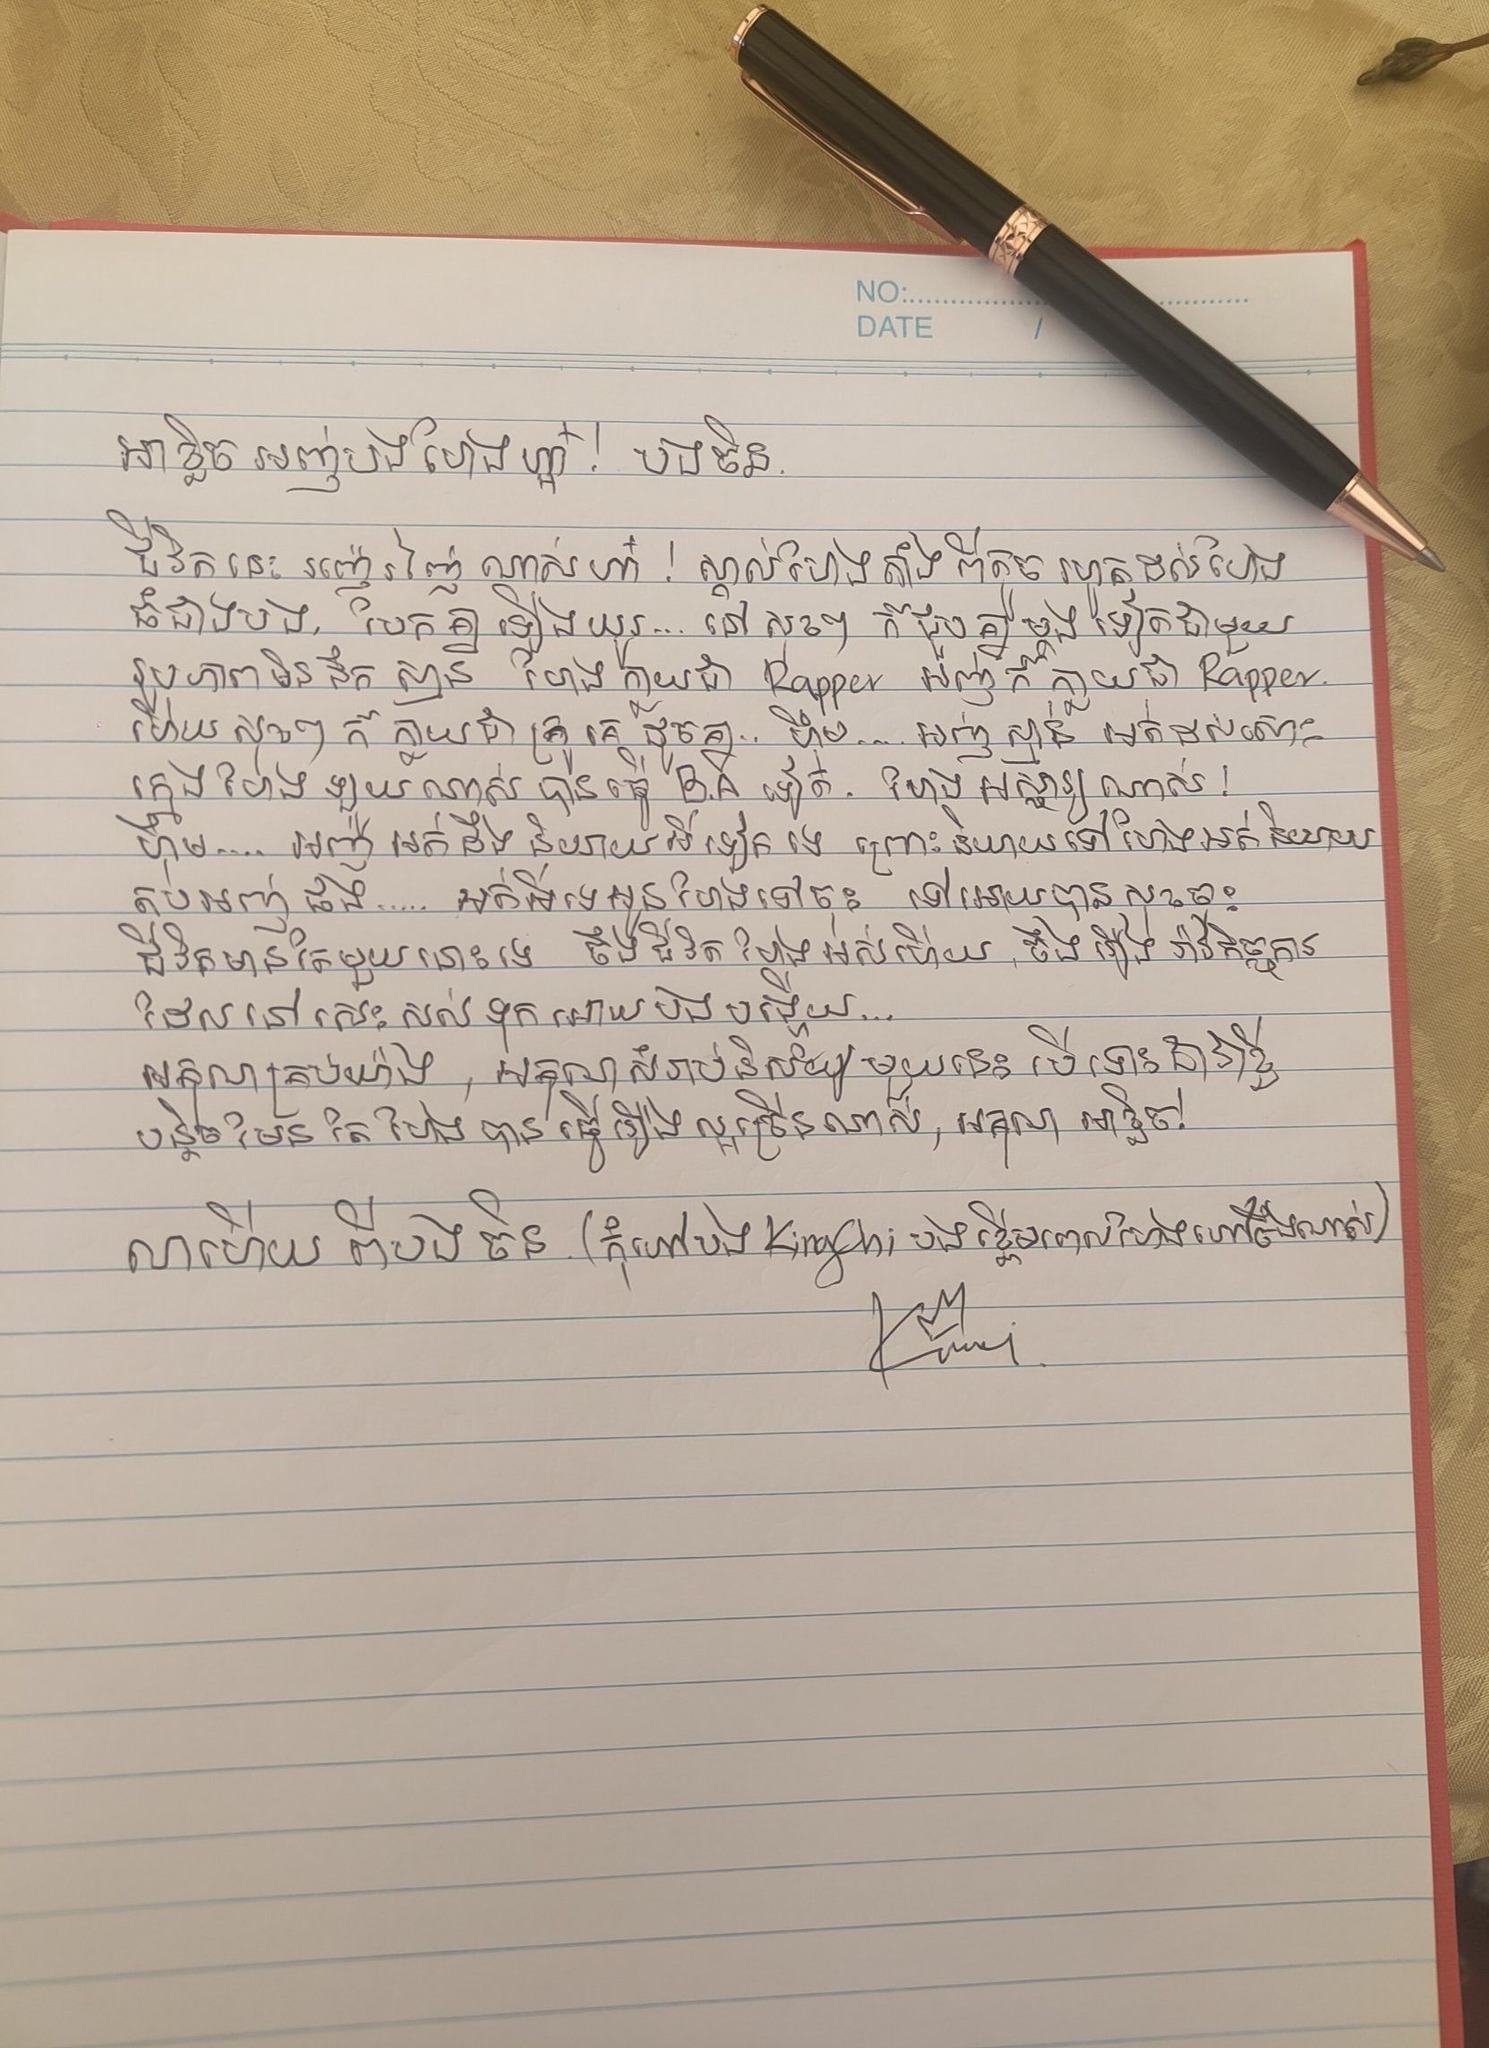 NO:
DATE /
អាខ្លិច អញបងហែងហ្អា៎! បងចិន.
ជីវិតនេះ រញ៉េរញ៉ៃ ណាស់ហា៎! ស្គាល់ហែងតាំងពីតូច រហូតដល់ហែង
ធំជាងបង, បែកគ្នាឡើងយូរ... នៅសុខៗ ក៏ជួបគ្នាម្ដងទៀតជាមួយ
រូបភាពមិននឹកស្មាន ហែងក្លាយជា Rapper អញក៏ក្លាយជា Rapper.
ហើយសុខៗ ក៏ក្លាយជាគ្រូគេដូចគ្នា.. ហ៊ឹម.... អញស្មាន អត់ដល់សោះ
ក្មេងហែងឡូយណាស់ បានធ្វើ B.A ទៀត. ហែងអស្ចារ្យណាស់!
ហ៊ឹម.... អញអត់ដឹងនិយាយអីទៀតទេ ព្រោះនិយាយទៅហែងអត់និយាយ
តបអញផង..... អត់អីទេអូនហែងទៅចុះ ទៅអោយបានសុខចុះ
ជីវិតមានតែមួយនោះទេ ចឹងជីវិតហែងអស់ហើយ, ចឹងរឿងរ៉ាវកិច្ចការ
ដែលនៅសេសសល់ទុកអោយបងបង្ហើយ...
អរគុណគ្រប់យ៉ាង, អរគុណសំរាប់និស្ស័យមួយនេះ បើទោះជាវាខ្លី
បន្តិចមែន តែហែងបានធ្វើរឿងល្អច្រើនណាស់, អរគុណ អាខ្លិច!
លាហើយ ពីបងចិន. (កុំហៅបង KingChi បងខ្មើមពេលហែងហៅចឹងណាស់)